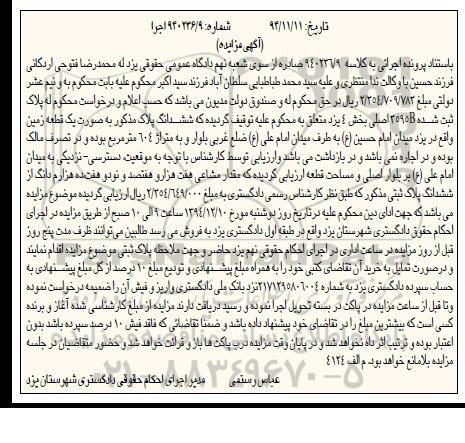 تاریخ: ۹۴/۱۱/۱۱ شماره: ۹۴۰۲۳۶/۹ اجرا
(آگهی مزایده)
باستناد پرونده اجرائی به کلاسه ۹۴۰۲۳۶/۹ صادره از سوی شعبه نهم دادگاه عمومی حقوقی یزد له محمدرضا فتوحی اردکانی
فرزند حسین با وکالت ندا منتظری و علیه سید محمد طباطبایی سلطان آباد فرزند سید اکبر محکوم علیه بابت محکوم به و نیم عشر
دولتی مبلغ ۲/۲۵۴/۷۰۹/۷۸۳ ریال در حق محکوم له و صندوق دولت مدیون می باشد که حسب اعلام و درخواست محکوم له پلاک
ثبت شده ۲۵۹۵B اصلی بخش ۴ یزد متعلق به محکوم علیه توقیف گردیده که ششدانگ پلاک مذکور به صورت یک قطعه زمین
واقع در یزد میدان امام حسین (ع) به طرف میدان امام علی (ع) ضلع غربی بلوار و به متراژ ۶۰۴ مترمربع بوده و در تصرف مالک
بوده و در اجاره نمی باشد و در بازداشت می باشد وارزیابی توسط کارشناس با توجه به موقعیت دسترسی- نزدیکی به میدان
امام علی (ع) بر بلوار اصلی و مساحت قطعه ارزیابی گردیده که مقدار مشاعی هفت هزارو هفتصد و نودو هفت ده هزارم دانگ از
ششدانگ پلاک ثبتی مذکور که طبق نظر کارشناس رسمی دادگستری به مبلغ ۲/۳۵۴/۶۴۹/۰۰۰ ریال ارزیابی گردیده موضوع مزایده
می باشد که جهت ادای دین محکوم علیه درتاریخ روز دوشنبه مورخ ۱۳۹۴/۱۲/۱۰ ساعت ۹ الی ۱۰ صبح از طریق مزایده در اجرای
احکام حقوق دادگستری شهرستان یزد واقع در طبقه اول دادگستری یزد به فروش می رسد طالبین می‌توانند ظرف مدت پنج روز
قبل از روز مزایده در ساعت اداری در اجرای احکام حقوقی نهم یزد حاضر و جهت ملاحظه پلاک ثبتی موضوع مزایده اقدام نمایند
و درصورت تمایل به خرید آن تقاضای کتبی خود را به همراه مبلغ پیشنهادی و تودیع مبلغ ۱۰ درصد از کل مبلغ پیشنهادی به
حساب سپرده دادگستری یزد به شماره ۲۱۷۱۲۹۵۸۰۶۰۰۴ نزد بانک ملی دادگستری واریز و فیش آن را ضمیمه درخواست نموده
وتا قبل از ساعت مزایده در پاکت در بسته تحویل اجرا نموده و رسید دریافت دارند مزایده از مبلغ کارشناسی شده آغاز و برنده
کسی است که بیشترین مبلغ را در تقاضای خود پیشنهاد داده باشد و ضمنا تقاضائی که فاقد فیش ۱۰ درصد سپرده باشد بدون
اعتبار بوده و ترتیب اثر داه نخواهد شد و در پایان وقت مزایده درب پاکت ها باز و قرائت خواهد شد و حضور متقاضیان در جلسه
مزایده بلامانع خواهد بود. م الف ۴۱۲۴
عباس رستمی مدیر اجرای احکام حقوقی دادگستری شهرستان یزد
۰۲۱-۸۸۳۴۹۶۷۰-۵